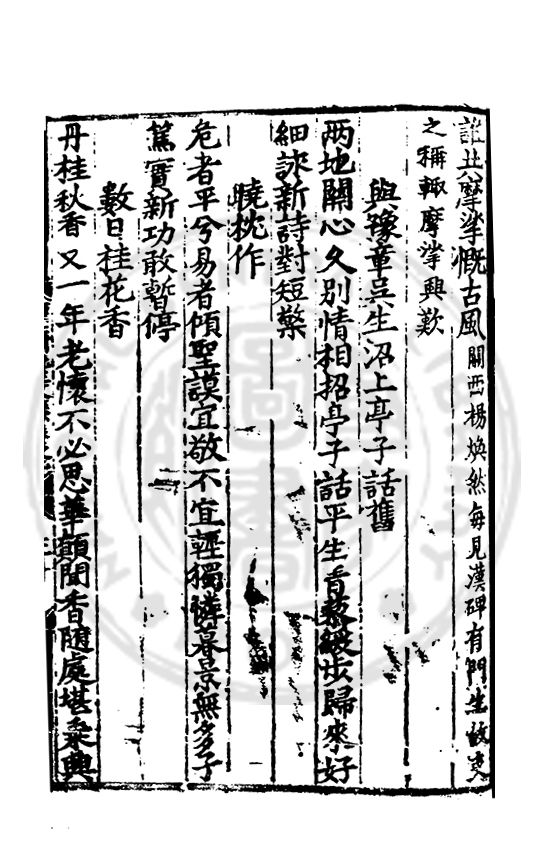 誰共摩挲慨古風關西楊煥然每見漢碑有門生故吏
之稱輙摩挲興歎
與豫章吳生沼上亭子話舊
兩地關心久别情相招亭子話平生青藜緩步歸來好
細詠新詩對短檠
曉枕作
危者平兮易者傾聖謨宜敬不宜輕獨憐暮景無多子
篤實新功敢暫停
數日桂花香
丹桂秋香又一年老懷不必思華顛聞香随處堪乗興